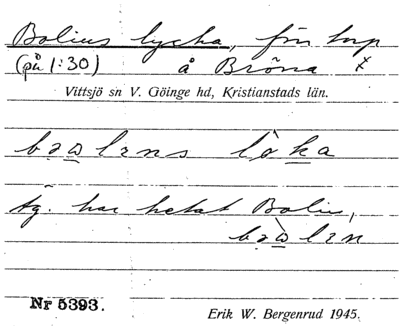 Bolius lycka, för torp
(på 1:30) å Bröna x
Vittsjö sn V. Göinge hd, Kristianstads län.
bəωlɛns lỳka
äg. har hetat Bolin,
bəὼlɛn
Nr 5393.
Erik W. Bergenrud 1945.